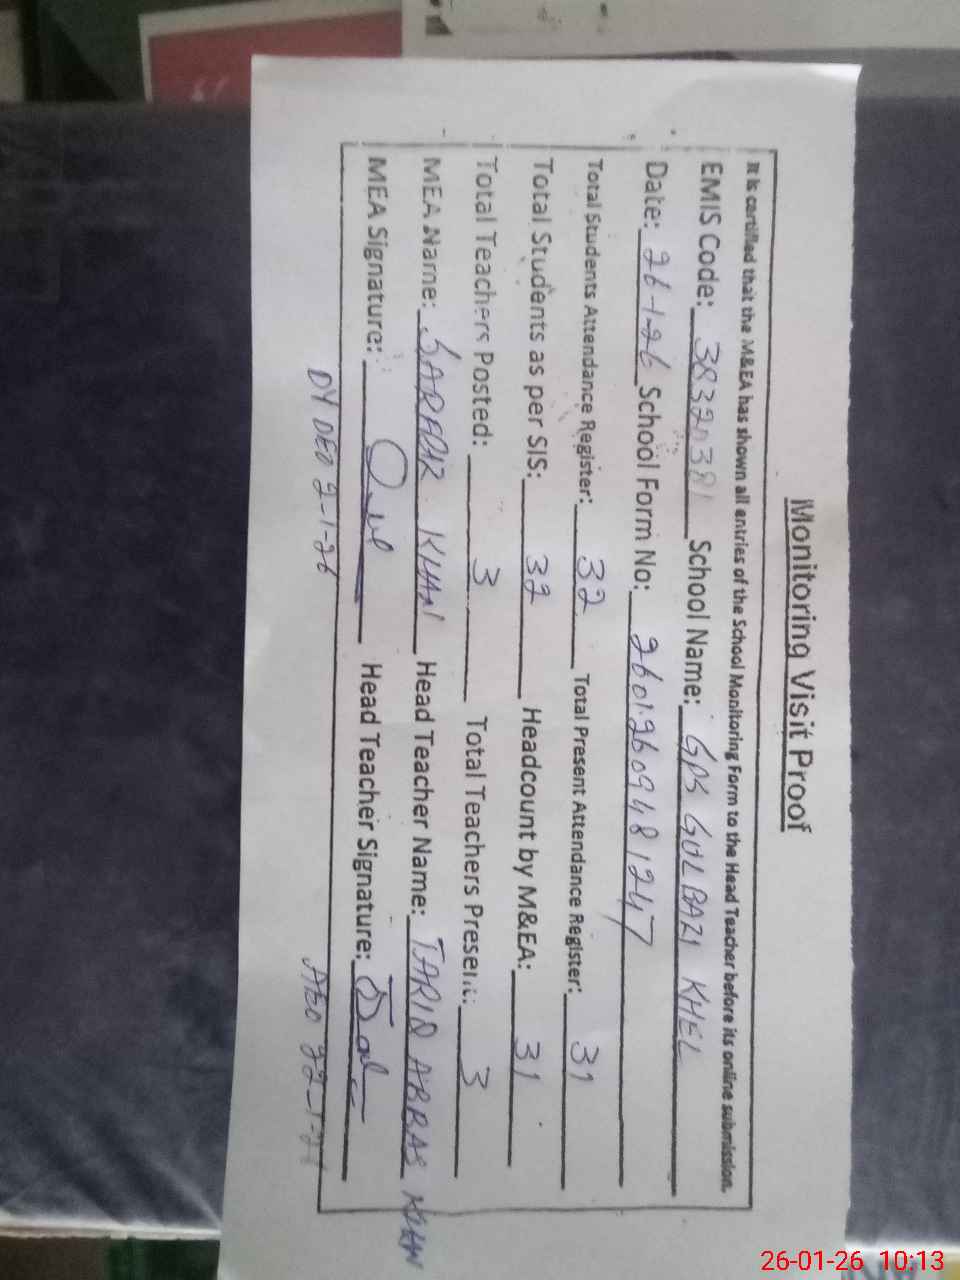 Monitoring Visit Proof
It is certified that the M&EA has shown all entries of the School Monitoring Form to the Head Teacher before its online submission.
EMIS Code: 38320381 School Name: GPS GUL BAZI KHEL
Date: 26-1-26 School Form No: 26012609481247
Total Students Attendance Register: 32 Total Present Attendance Register: 31
Total Students as per SIS: 32 Headcount by M&EA: 31
Total Teachers Posted: 3 Total Teachers Present: 3
MEA Name: SARADR KHAN Head Teacher Name: TARIQ ABBAS KHAN
MEA Signature: Head Teacher Signature:
DY DEO 2-1-26 AEO 22-1-
26-01-26 10:13